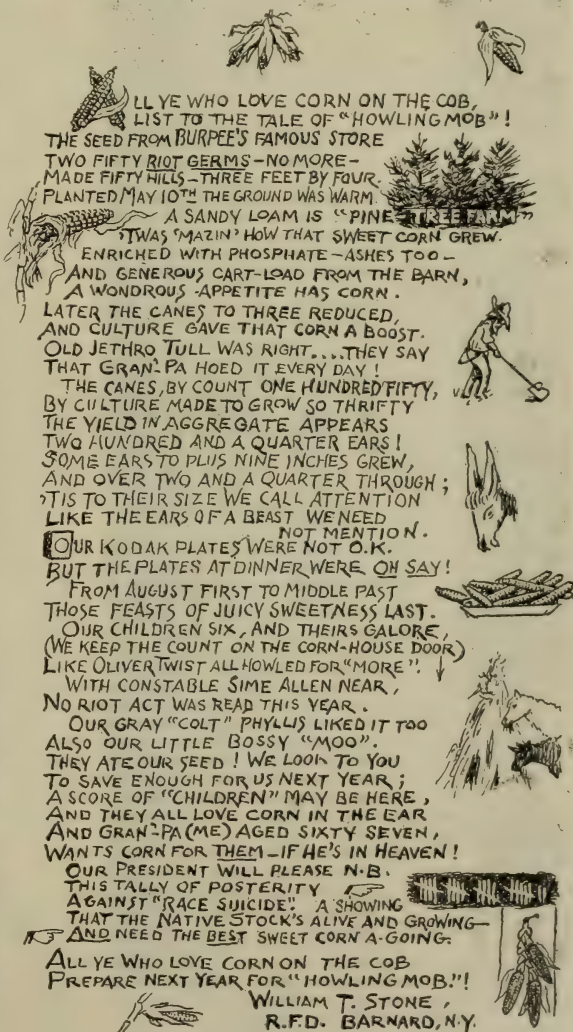 ALL YE WHO LOVE CORN ON THE COB,
LIST TO THE TALE OF "HOWLING MOB"!
THE SEED FROM BURPEE'S FAMOUS STORE
TWO FIFTY RIOT GERMS - NO MORE -
MADE FIFTY HILLS - THREE FEET BY FOUR.
PLANTED MAY 10TH THE GROUND WAS WARM.
A SANDY LOAM IS "PINE TREE FARM"
'TWAS 'MAZIN' HOW THAT SWEET CORN GREW.
ENRICHED WITH PHOSPHATE - ASHES TOO -
AND GENEROUS CART-LOAD FROM THE BARN,
A WONDROUS APPETITE HAS CORN.
LATER THE CANES TO THREE REDUCED,
AND CULTURE GAVE THAT CORN A BOOST.
OLD JETHRO TULL WAS RIGHT....THEY SAY
THAT GRAN'-PA HOED IT EVERY DAY!
THE CANES, BY COUNT ONE HUNDRED FIFTY,
BY CULTURE MADE TO GROW SO THRIFTY
THE YIELD IN AGGREGATE APPEARS
TWO HUNDRED AND A QUARTER EARS!
SOME EARS TO PLUS NINE INCHES GREW,
AND OVER TWO AND A QUARTER THROUGH;
'TIS TO THEIR SIZE WE CALL ATTENTION
LIKE THE EARS OF A BEAST WE NEED
NOT MENTION.
OUR KODAK PLATES WERE NOT O.K.
BUT THE PLATES AT DINNER WERE OH SAY!
FROM AUGUST FIRST TO MIDDLE PAST
THOSE FEASTS OF JUICY SWEETNESS LAST.
OUR CHILDREN SIX, AND THEIRS GALORE,
(WE KEEP THE COUNT ON THE CORN-HOUSE DOOR)
LIKE OLIVER TWIST ALL HOWLED FOR "MORE"!
WITH CONSTABLE SIME ALLEN NEAR,
NO RIOT ACT WAS READ THIS YEAR.
OUR GRAY "COLT" PHYLLIS LIKED IT TOO
ALSO OUR LITTLE BOSSY "MOO".
THEY ATE OUR SEED! WE LOOK TO YOU
TO SAVE ENOUGH FOR US NEXT YEAR;
A SCORE OF "CHILDREN" MAY BE HERE,
AND THEY ALL LOVE CORN IN THE EAR
AND GRAN'-PA (ME) AGED SIXTY SEVEN,
WANTS CORN FOR THEM - IF HE'S IN HEAVEN!
OUR PRESIDENT WILL PLEASE N.B.
THIS TALLY OF POSTERITY
AGAINST "RACE SUICIDE". A SHOWING
THAT THE NATIVE STOCK'S ALIVE AND GROWING-
AND NEED THE BEST SWEET CORN A-GOING.
ALL YE WHO LOVE CORN ON THE COB
PREPARE NEXT YEAR FOR "HOWLING MOB."!
WILLIAM T. STONE,
R.F.D. BARNARD, N.Y.